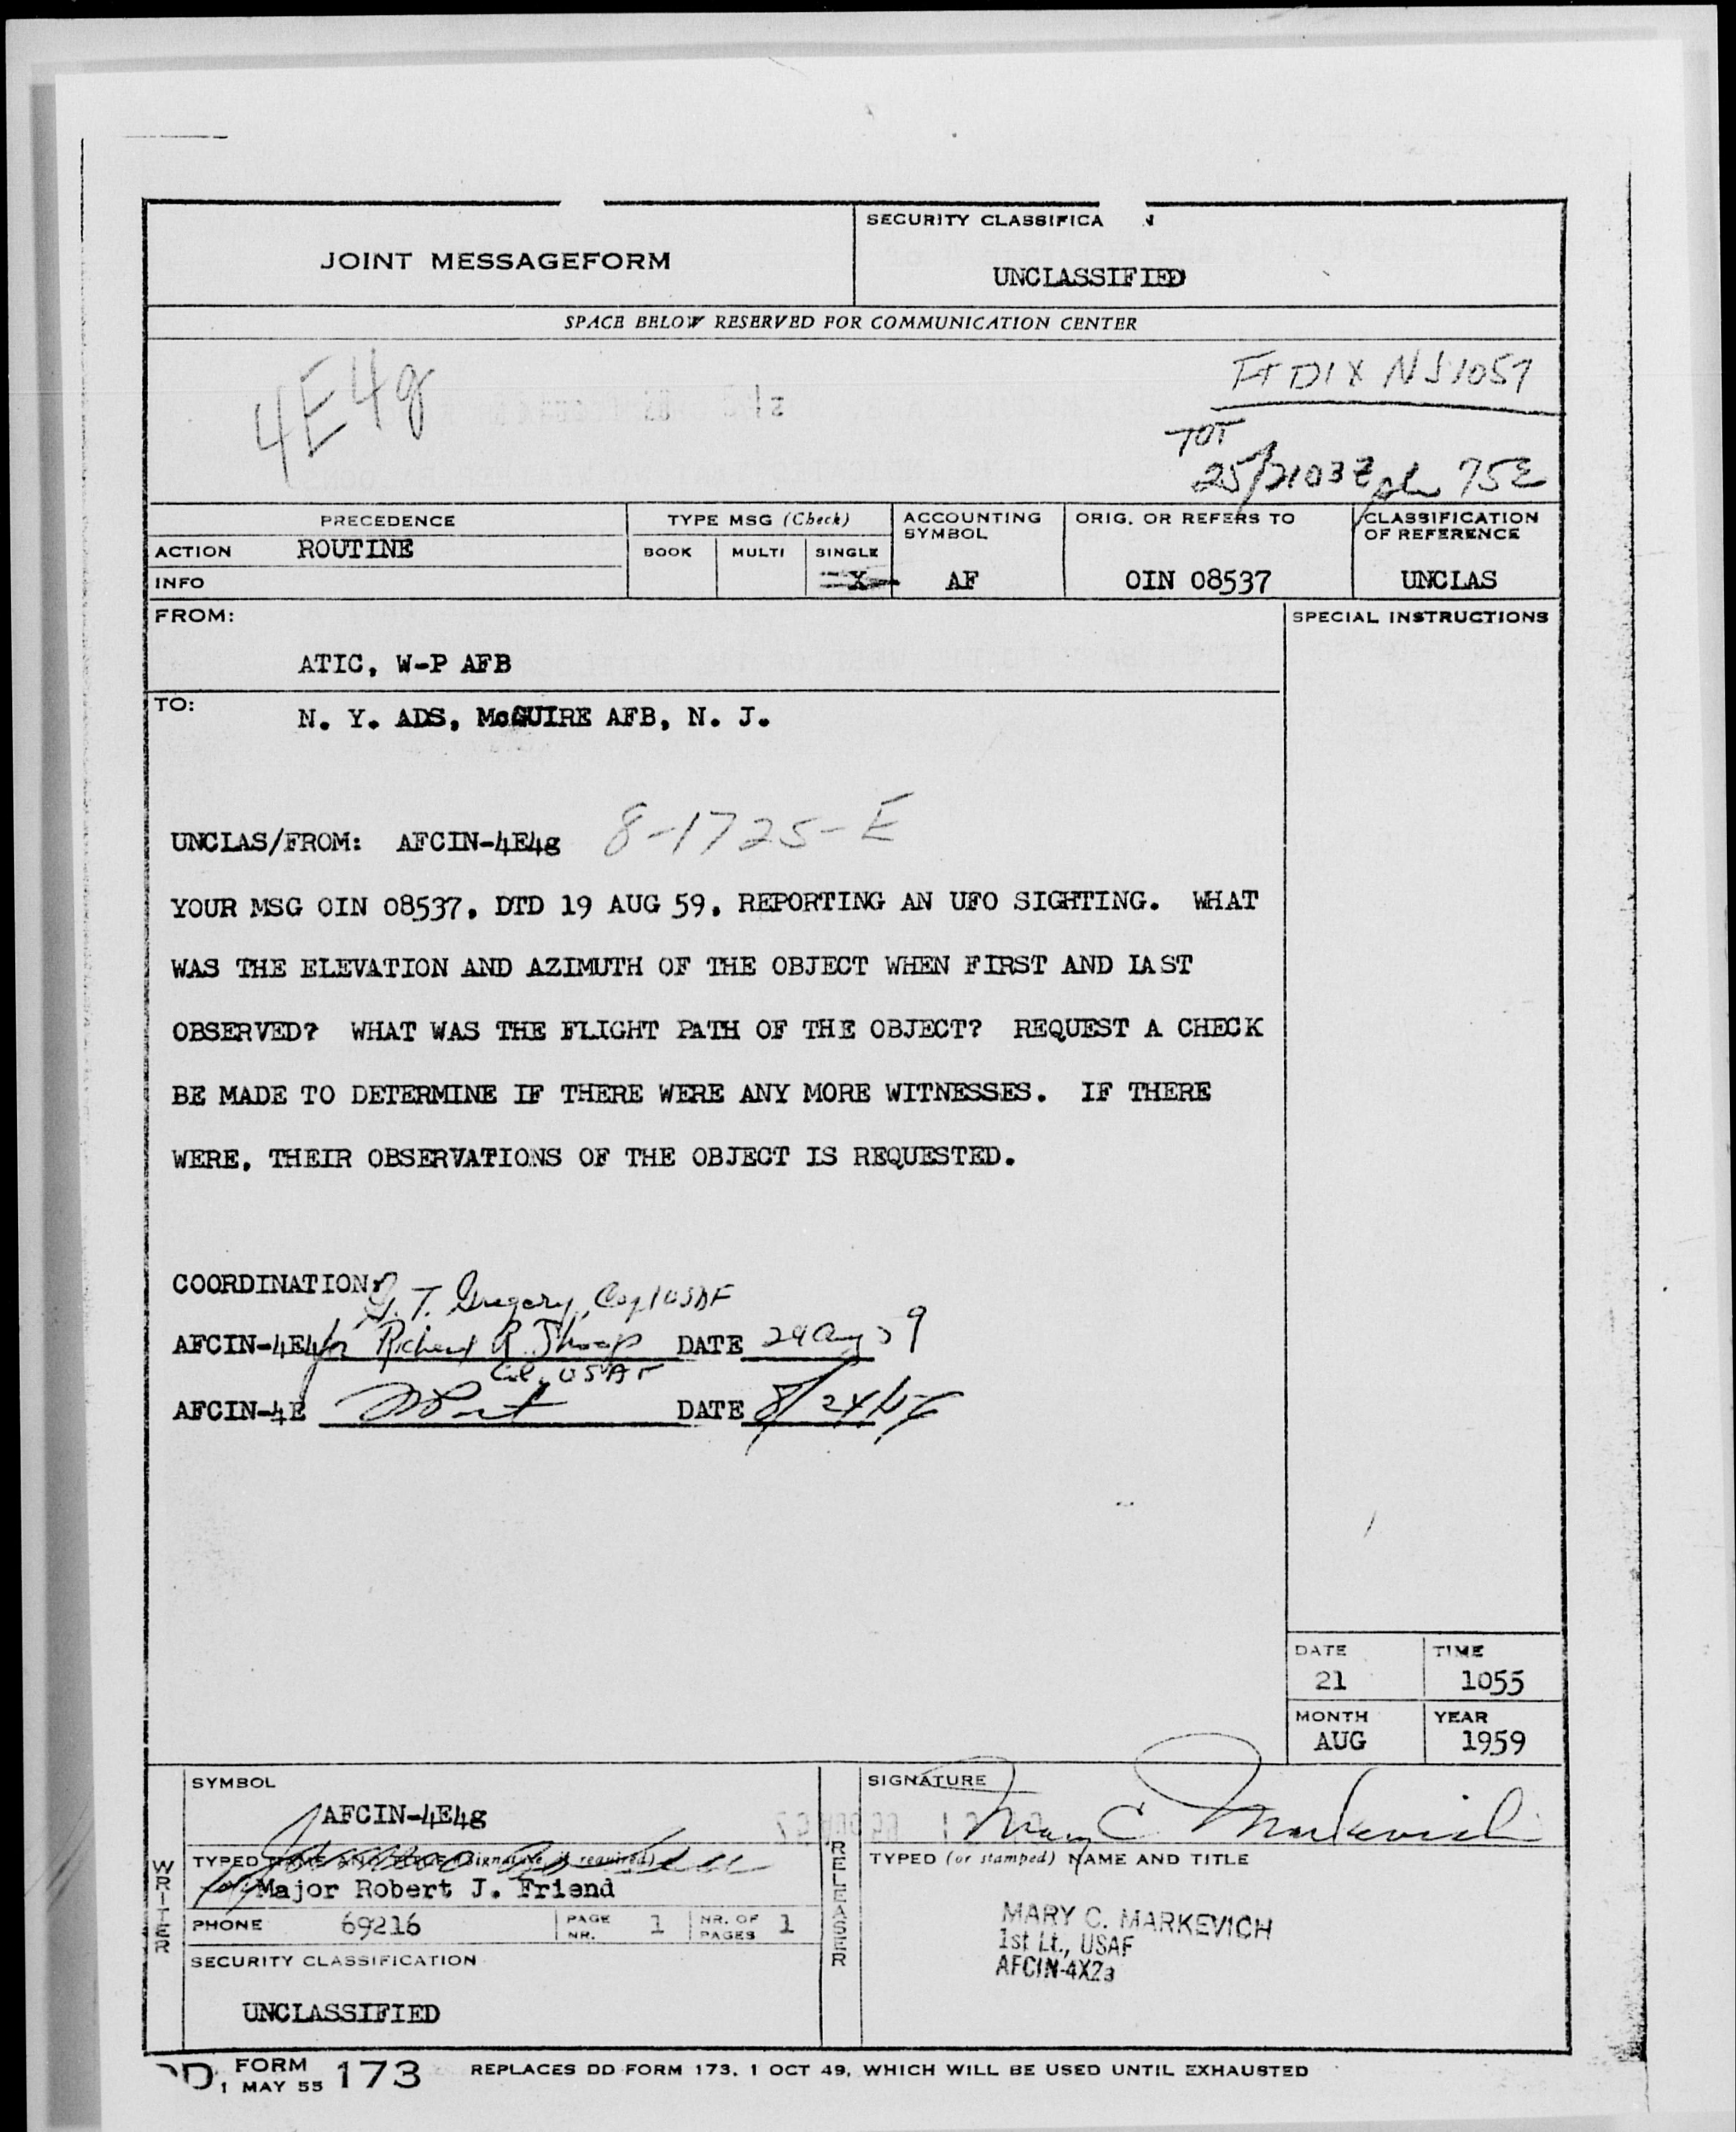 SECURITY CLASSIFICA N
JOINT MESSAGEFORM
UNCLASSIFIED
SPACE BELOW RESERVED FOR COMMUNICATION CENTER
4E4g
FT DIX NJ 1057
TOT
25/2103Z 752
PRECEDENCE
TYPE MSG (Check)
ACCOUNTING SYMBOL
ORIG. OR REFERS TO
CLASSIFICATION OF REFERENCE
ACTION ROUTINE
BOOK MULTI SINGLE
INFO
X
AF
OIN 08537
UNCLAS
FROM:
SPECIAL INSTRUCTIONS
ATIC, W-P AFB
TO:
N. Y. ADS, McGUIRE AFB, N. J.
UNCLAS/FROM: AFCIN-4E4g 8-1725-E
YOUR MSG OIN 08537, DTD 19 AUG 59, REPORTING AN UFO SIGHTING. WHAT
WAS THE ELEVATION AND AZIMUTH OF THE OBJECT WHEN FIRST AND LAST
OBSERVED? WHAT WAS THE FLIGHT PATH OF THE OBJECT? REQUEST A CHECK
BE MADE TO DETERMINE IF THERE WERE ANY MORE WITNESSES. IF THERE
WERE, THEIR OBSERVATIONS OF THE OBJECT IS REQUESTED.
COORDINATION:
G. T. Gregory, Capt USAF
AFCIN-4E4 for Richard R. Shoop DATE 24 Aug 59
Col, USAF
AFCIN-4E DATE 8/24/59
DATE
TIME
21
1055
MONTH
YEAR
AUG
1959
SYMBOL
AFCIN-4E4g
SIGNATURE
Mary C Markevich
WRITER
TYPED NAME AND TITLE (Signature, if required)
for Major Robert J. Friend
PHONE 69216 PAGE NR. 1 NR. OF PAGES 1
SECURITY CLASSIFICATION
UNCLASSIFIED
RELEASER
TYPED (or stamped) NAME AND TITLE
MARY C. MARKEVICH
1st Lt., USAF
AFCIN-4X2a
DD FORM 173 1 MAY 55 REPLACES DD FORM 173, 1 OCT 49, WHICH WILL BE USED UNTIL EXHAUSTED